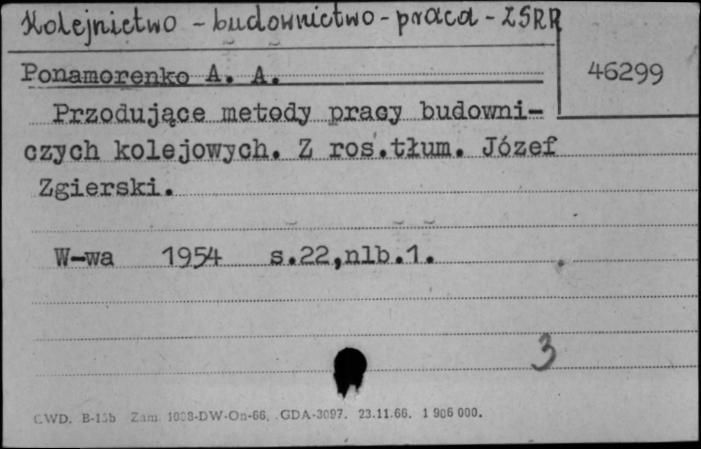 Kolejnictwo - budownictwo - praca - ZSRR
46299
Ponamorenko A. A.
Przodujące metody pracy budowni-
czych kolejowych. Z ros.tłum. Józef
Zgierski.
W-wa 1954 s.22,nlb.1.
3
CWD. B-15b Zam. 1038-DW-On-66. GDA-3097. 23.11.66. 1 906 000.